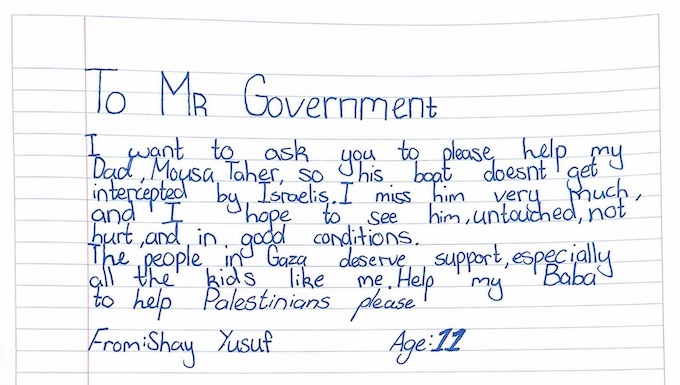 To MR Government
I want to ask you to please help my
Dad, Mousa Taher, so his boat doesnt get
intercepted by Israelis. I miss him very much,
and I hope to see him, untouched, not
hurt, and in good conditions.
The people in Gaza deserve support, especially
all the kids like me. Help my Baba
to help Palestinians please
From: Shay Yusuf Age: 11